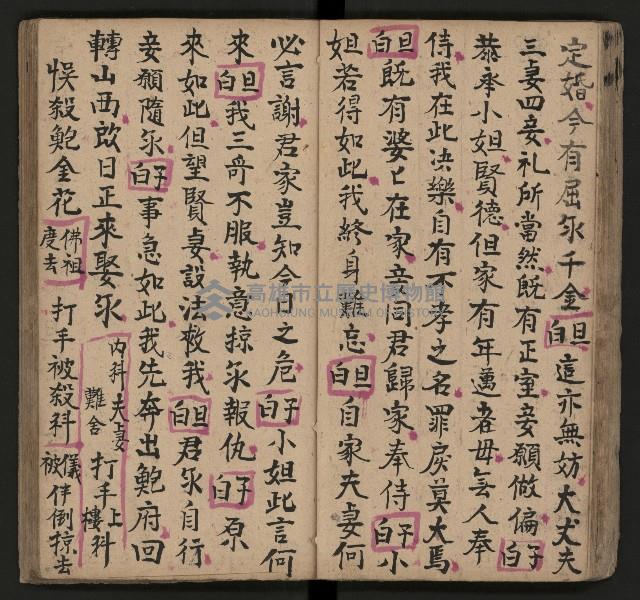 定婚今有屈氶千金 旦白 這亦無妨大丈夫
三妻四妾礼所當然既有正室妾願做偏 子白
恭奉小姐賢德但家有年邁老母無人奉
侍我在此决樂自有不孝之名罪戾莫大焉
旦白 既有婆〻在家妾同君歸家奉侍 子白 小
姐若得如此我終身難忘 旦白 自家夫妻何
必言謝君家豈知今日之危 子白 小姐此言何
來 旦白 我三哥不服執意掠氶報仇 子白 原
來如此但望賢妻設法救我 旦白 君氶自行
妾願隨氶 子白 事急如此我先奔出鮑府回
轉山西啟日正來娶氶 内科夫妻難舍 打手上樓科
悞殺鮑金花 佛祖度去 打手被殺科 儀被伴倒掠去
高雄市立歷史博物館
KAOHSIUNG MUSEUM OF HISTORY